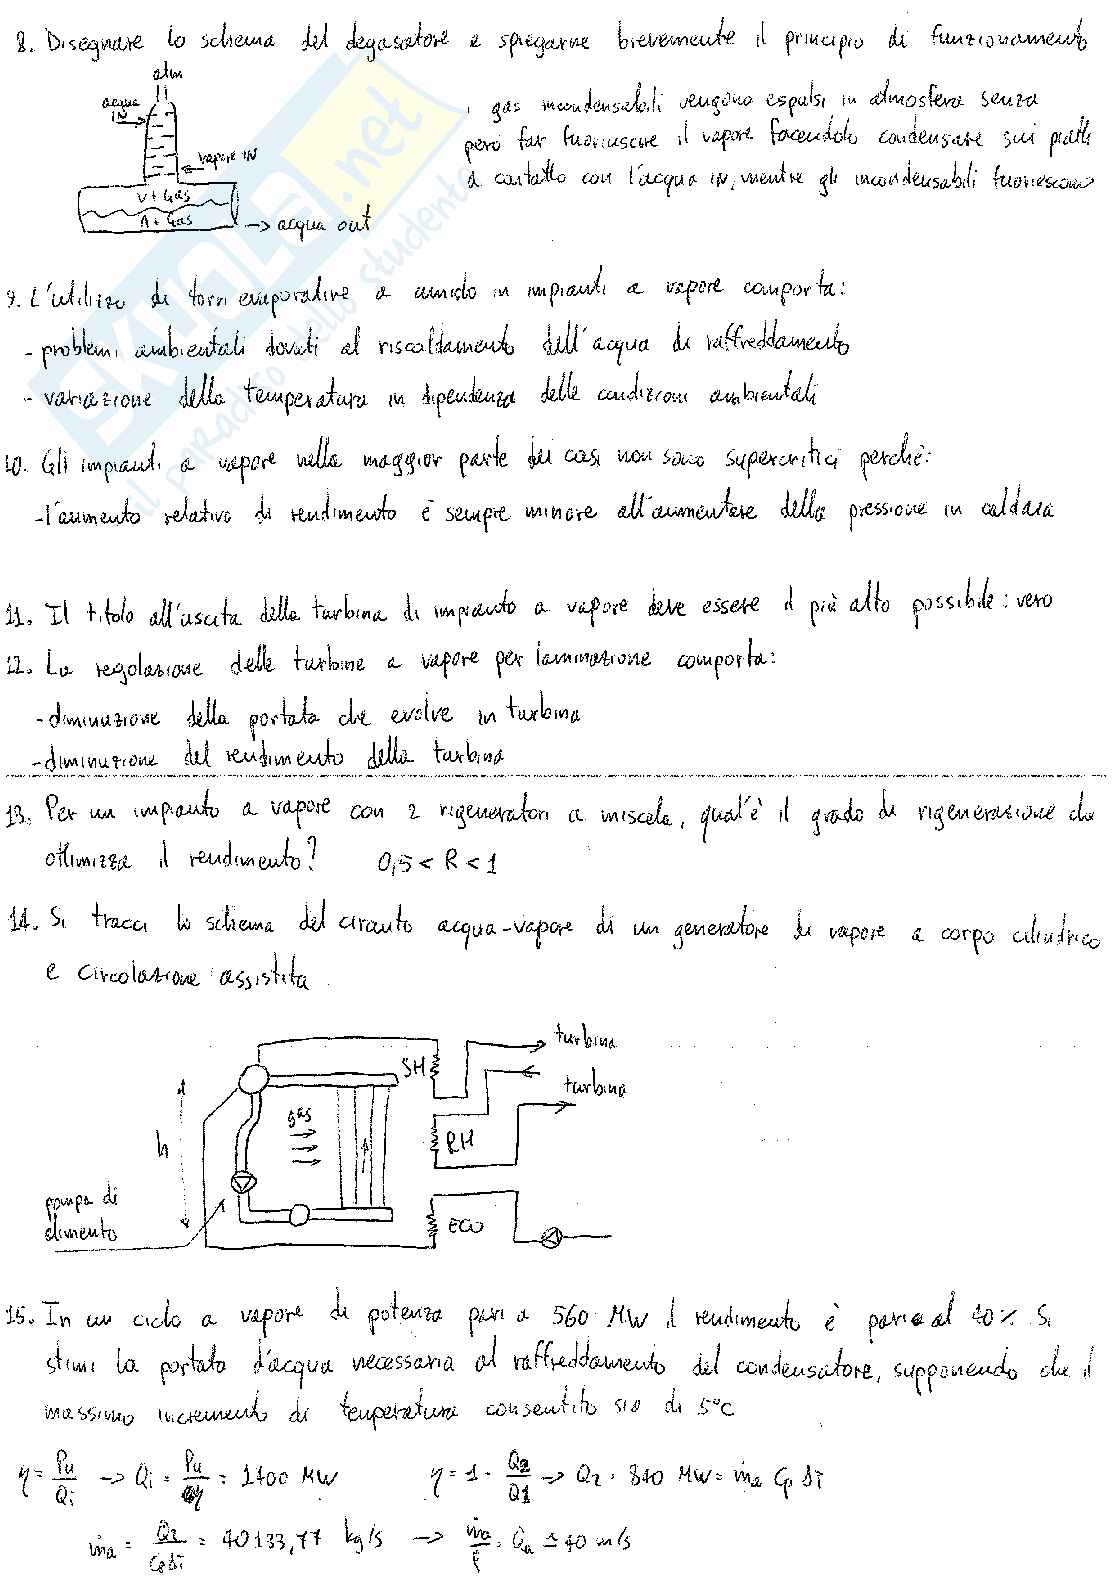 8. Disegnare lo schema del degasatore e spiegarne brevemente il principio di funzionamento
atm
acqua IN
vapore IN
V + Gas
A + Gas
→ acqua out
i gas incondensabili vengono espulsi in atmosfera senza
però far fuoriuscire il vapore facendolo condensare sui piatti
a contatto con l'acqua IN, mentre gli incondensabili fuoriescono
9. L'utilizzo di torri evaporative a umido in impianti a vapore comporta:
- problemi ambientali dovuti al riscaldamento dell'acqua di raffreddamento
- variazione della temperatura in dipendenza delle condizioni ambientali
10. Gli impianti a vapore nella maggior parte dei casi non sono supercritici perchè:
- l'aumento relativo di rendimento è sempre minore all'aumentare della pressione in caldaia
11. Il titolo all'uscita della turbina di impianto a vapore deve essere il più alto possibile: vero
12. La regolazione delle turbine a vapore per laminazione comporta:
- diminuzione della portata che evolve in turbina
- diminuzione del rendimento della turbina
13. Per un impianto a vapore con 2 rigeneratori a miscela, qual'è il grado di rigenerazione che
ottimizza il rendimento? 0,5 < R < 1
14. Si tracci lo schema del circuito acqua-vapore di un generatore di vapore a corpo cilindrico
e circolazione assistita
turbina
SH
turbina
gas
h
RH
pompa di
alimento
ECO
15. In un ciclo a vapore di potenza pari a 560 MW il rendimento è pari al 40% Si
stimi la portata d'acqua necessaria al raffreddamento del condensatore, supponendo che il
massimo incremento di temperatura consentito sia di 5°C
η = Pu/Qi → Qi = Pu/η = 1400 MW η = 1 - Q2/Q1 → Q2 = 840 MW = ṁa Cp ΔT
ṁa = Q2/CpΔT = 40133,77 kg/s → ṁa/ρ = Qa ≃ 40 m/s
SKUOLA.net
il paradiso dello studente